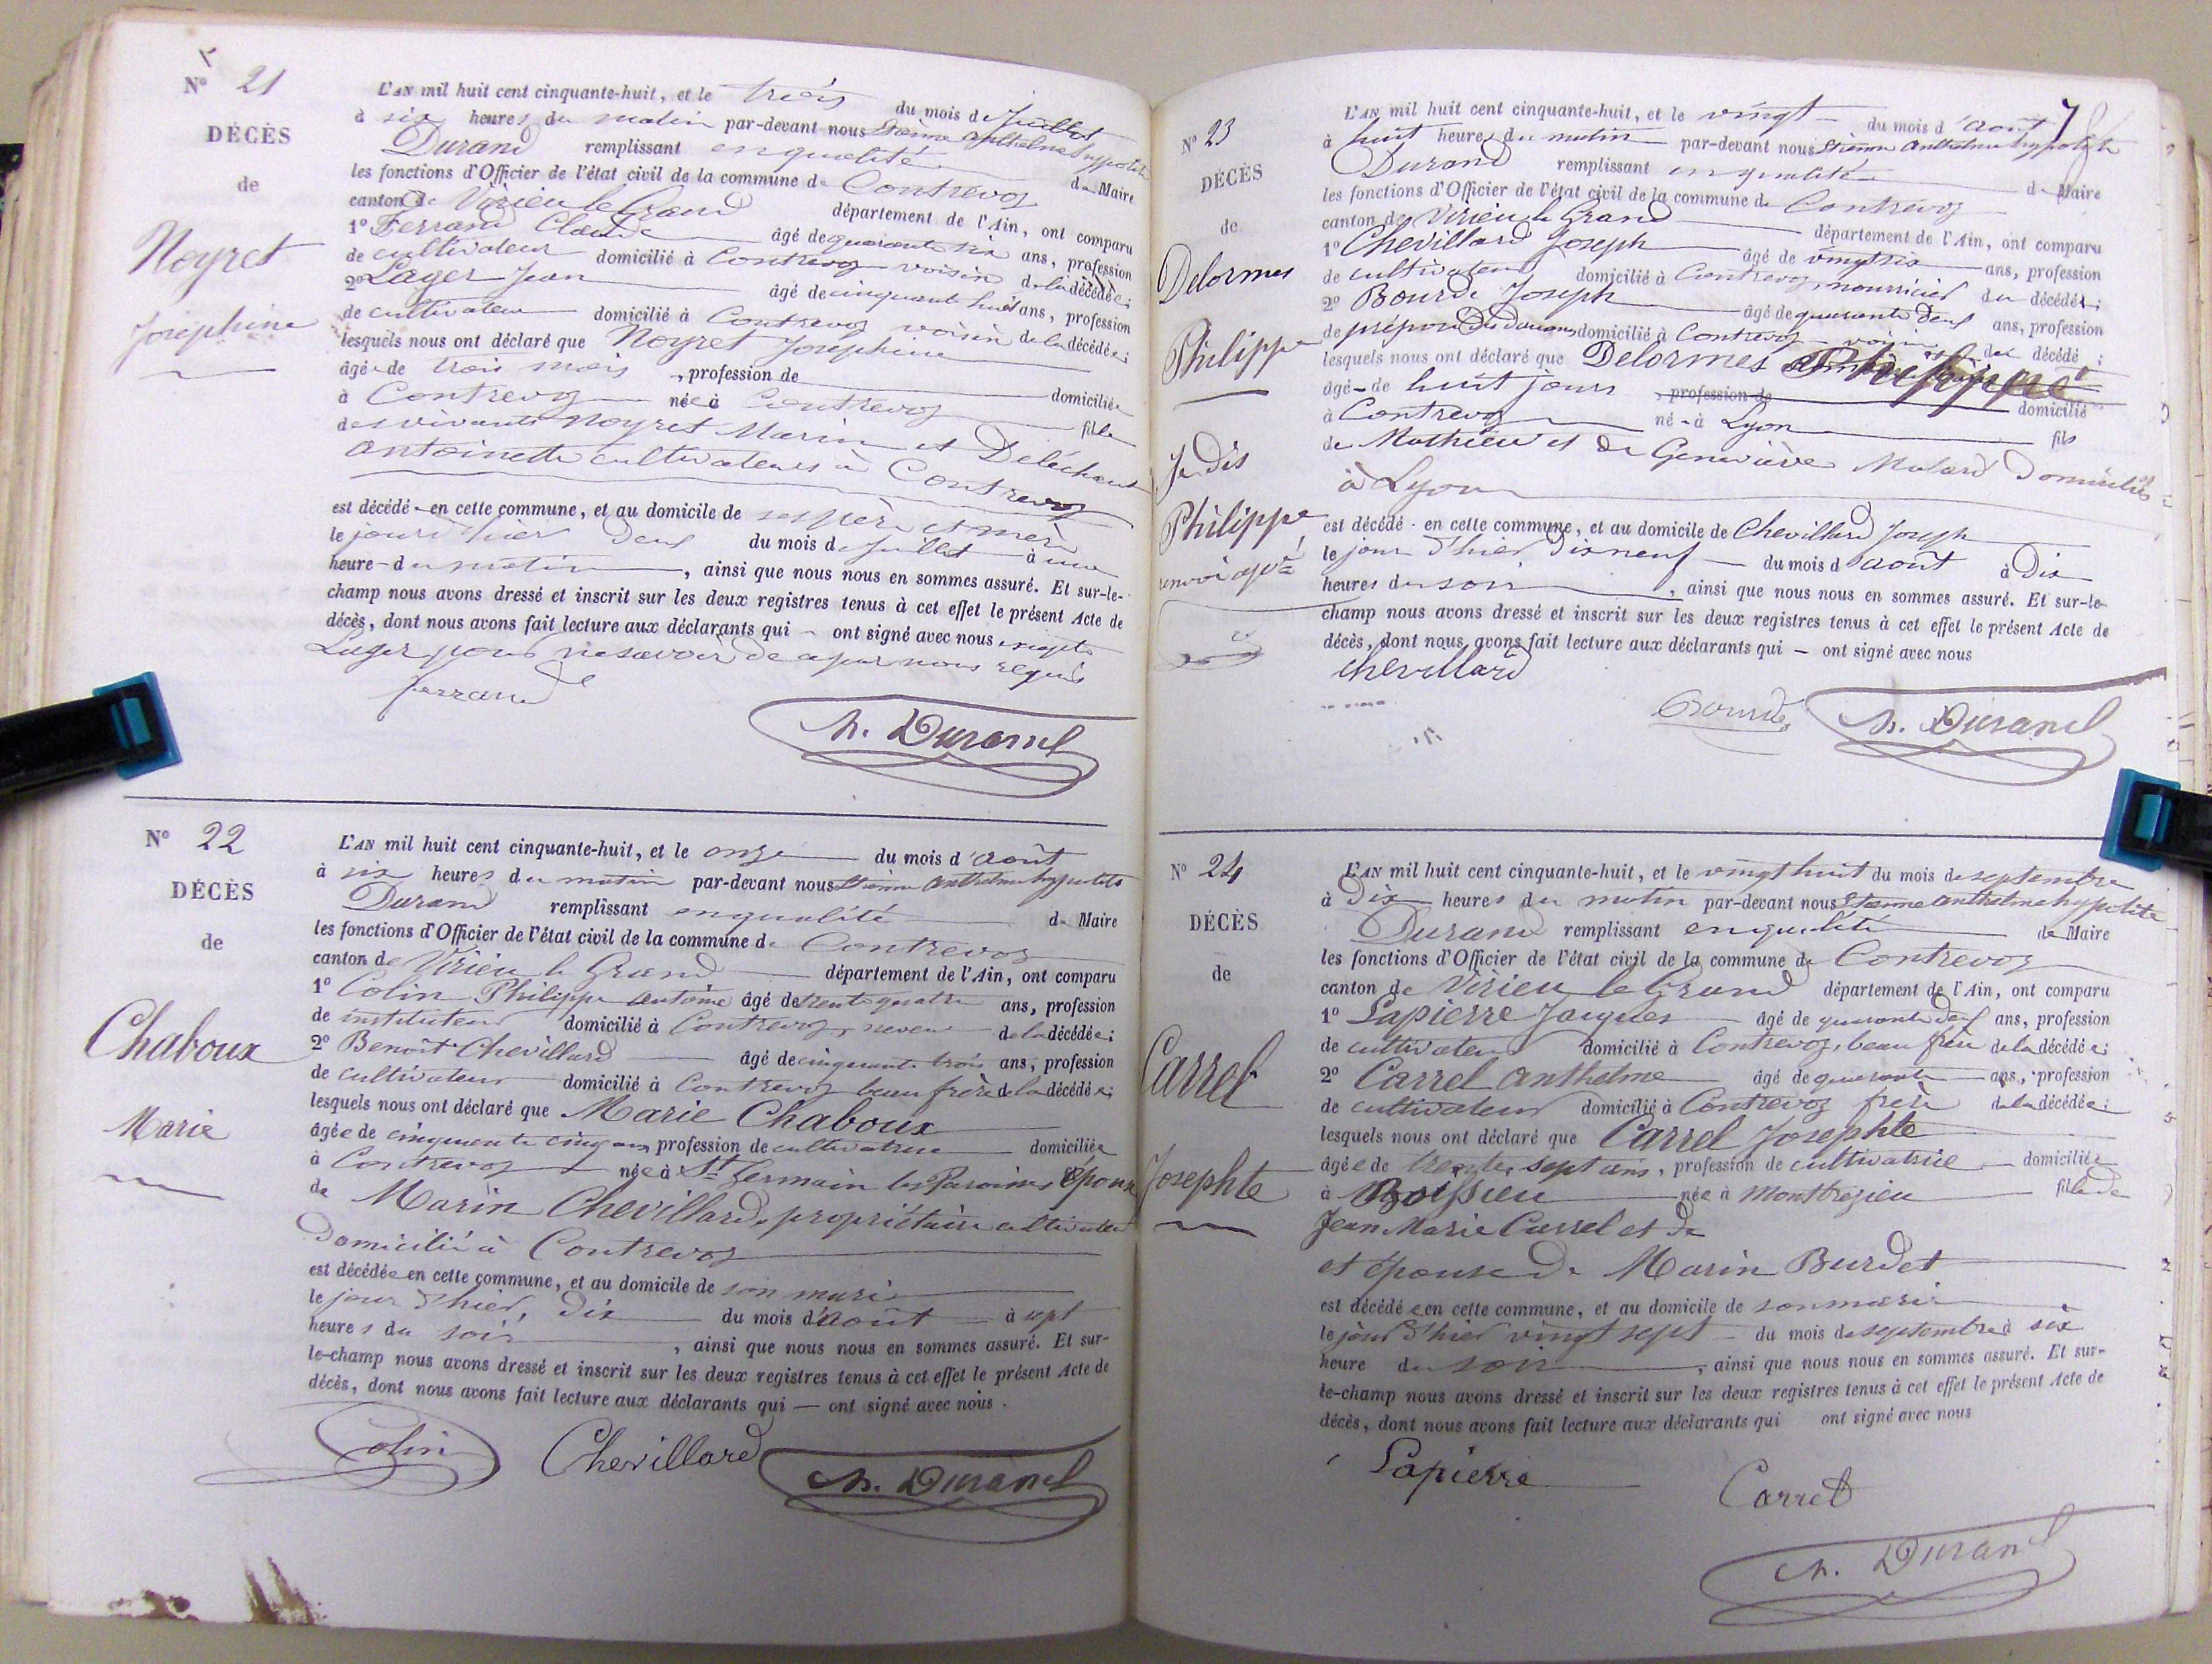 N° 21
DÉCÈS
de
Noyret
Joséphine
L'AN mil huit cent cinquante-huit, et le trois du mois de Juillet
à six heures du matin par-devant nous Etienne Anthelme hyppolite
Durand remplissant en qualité de Maire
les fonctions d'Officier de l'état civil de la commune de Contrevoz
canton de Virieu le Grand département de l'Ain, ont comparu
1° Ferrand Claude âgé de quarante six ans, profession
de cultivateur domicilié à Contrevoz voisin de la décédée;
2° Luger Jean âgé de cinquante huit ans, profession
de cultivateur domicilié à Contrevoz voisin de la décédée;
lesquels nous ont déclaré que Noyret Joséphine
âgée de trois mois, profession de domiciliée
à Contrevoz née à Contrevoz fille
des vivants Noyret Marin et
Antoinette cultivateurs à Contrevoz
est décédé en cette commune, et au domicile de ses père et mère
le jour d'hier deux du mois de Juillet à une
heure du matin, ainsi que nous nous en sommes assuré. Et sur-le-
champ nous avons dressé et inscrit sur les deux registres tenus à cet effet le présent Acte de
décès, dont nous avons fait lecture aux déclarants qui – ont signé avec nous excepté
Luger pour ne savoir de ce par nous requis
ferrand
h. Durand
N° 22
DÉCÈS
de
Chaboux
Marie
L'AN mil huit cent cinquante-huit, et le onze du mois d'août
à six heures du matin par-devant nous Etienne Anthelme hyppolite
Durand remplissant en qualité de Maire
les fonctions d'Officier de l'état civil de la commune de Contrevoz
canton de Virieu le Grand département de l'Ain, ont comparu
1° Colin Philippe Antoine âgé de trente quatre ans, profession
de instituteur domicilié à Contrevoz, neveu de la décédée;
2° Benoît Chevillard âgé de cinquante trois ans, profession
de cultivateur domicilié à Contrevoz beau frère de la décédée;
lesquels nous ont déclaré que Marie Chaboux
âgée de cinquante cinq ans, profession de cultivatrice domiciliée
à Contrevoz née à St Germain les Paroisses épouse
de Marin Chevillard, propriétaire cultivateur
domicilié à Contrevoz
est décédée en cette commune, et au domicile de son mari
le jour d'hier, dix du mois d'août à sept
heures du soir, ainsi que nous nous en sommes assuré. Et sur-
le-champ nous avons dressé et inscrit sur les deux registres tenus à cet effet le présent Acte de
décès, dont nous avons fait lecture aux déclarants qui — ont signé avec nous.
Colin Chevillard h. Durand
7
N° 23
DÉCÈS
de
Delormes
Philippe
Je dis
Philippe
renvoi app.vé
L'AN mil huit cent cinquante-huit, et le vingt du mois d'août
à huit heures du matin par-devant nous Etienne Anthelme hyppolite
Durand remplissant en qualité de Maire
les fonctions d'Officier de l'état civil de la commune de Contrevoz
canton de Virieu le Grand département de l'Ain, ont comparu
1° Chevillard Joseph âgé de vingt six ans, profession
de cultivateur domicilié à Contrevoz, nourricier du décédé;
2° Bourde Joseph âgé de quarante deux ans, profession
de préposé des douanes domicilié à Contrevoz voisin du décédé;
lesquels nous ont déclaré que Delormes Philippe
âgé de huit jours, profession de domicilié
à Contrevoz né à Lyon fils
de Mathieu et de Geneviève Molard domiciliés
à Lyon
est décédé en cette commune, et au domicile de Chevillard Joseph
le jour d'hier dix neuf du mois d'août à dix
heures du soir, ainsi que nous nous en sommes assuré. Et sur-le-
champ nous avons dressé et inscrit sur les deux registres tenus à cet effet le présent Acte de
décès, dont nous avons fait lecture aux déclarants qui – ont signé avec nous
chevillard
Bourde h. Durand
N° 24
DÉCÈS
de
Carrel
Josephte
L'AN mil huit cent cinquante-huit, et le vingt huit du mois de septembre
à dix heures du matin par-devant nous Etienne Anthelme hyppolite
Durand remplissant en qualité de Maire
les fonctions d'Officier de l'état civil de la commune de Contrevoz
canton de Virieu le Grand département de l'Ain, ont comparu
1° Lapierre Jacques âgé de quarante deux ans, profession
de cultivateur domicilié à Contrevoz, beau frère de la décédée;
2° Carrel Anthelme âgé de quarante ans, profession
de cultivateur domicilié à Contrevoz frère de la décédée;
lesquels nous ont déclaré que Carrel Josephte
âgée de trente sept ans, profession de cultivatrice domiciliée
à Boissieu née à Montbrezieu fille de
Jean Marie Carrel et de
et épouse de Marin Burdet
est décédée en cette commune, et au domicile de son mari
le jour d'hier vingt sept du mois de septembre à six
heure du soir, ainsi que nous nous en sommes assuré. Et sur-
le-champ nous avons dressé et inscrit sur les deux registres tenus à cet effet le présent Acte de
décès, dont nous avons fait lecture aux déclarants qui ont signé avec nous
Lapierre Carrel
h. Durand